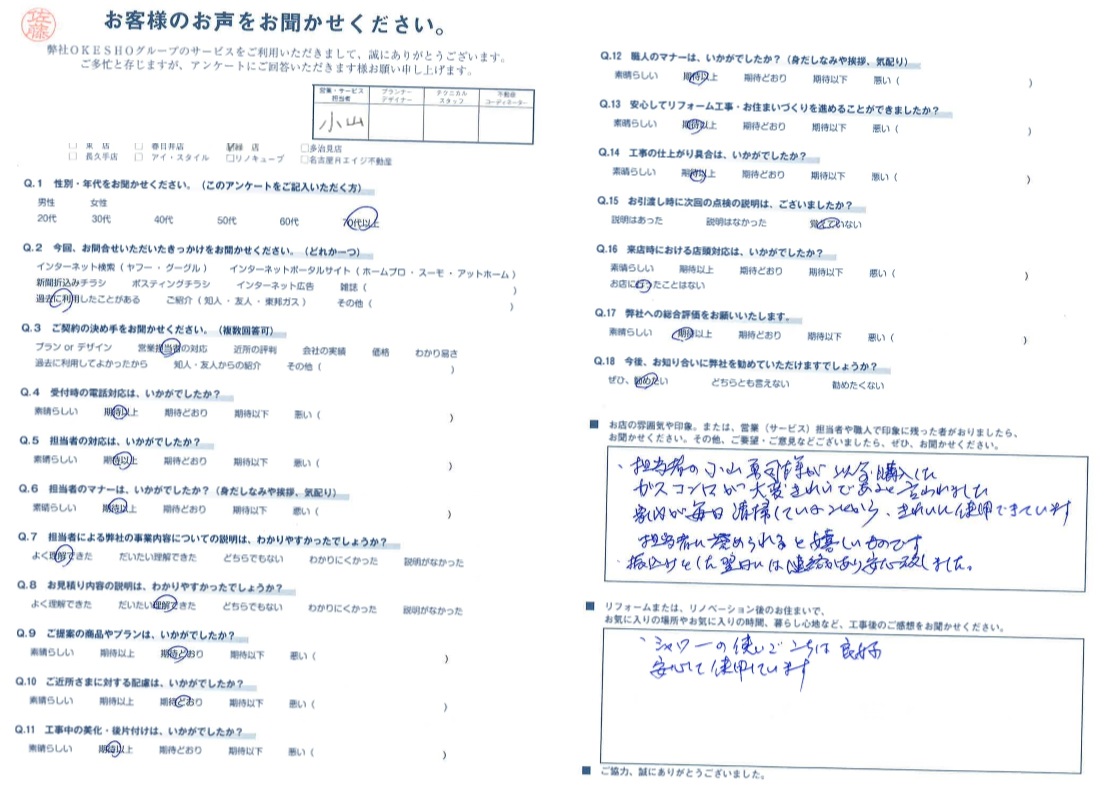 佐藤
お客様のお声をお聞かせください。
弊社OKESHOグループのサービスをご利用いただきまして、誠にありがとうございます。
ご多忙と存じますが、アンケートにご回答いただきます様お願い申し上げます。
営業・サービス担当者 プランナーデザイナー テクニカルスタッフ 不動産コーディネーター
小山
□ 本 店 □ 春日井店 緑 店 □多治見店
□ 長久手店 □ アイ・スタイル □リノキューブ □名古屋月エイジ不動産
Q.1 性別・年代をお聞かせください。(このアンケートをご記入いただく方)
男性 女性
20代 30代 40代 50代 60代 70代以上
Q.2 今回、お問合せいただいたきっかけをお聞かせください。(どれか一つ)
インターネット検索(ヤフー・グーグル) インターネットポータルサイト(ホームプロ・スーモ・アットホーム)
新聞折込みチラシ ポスティングチラシ インターネット広告 雑誌( )
過去に利用したことがある ご紹介(知人・友人・東邦ガス) その他( )
Q.3 ご契約の決め手をお聞かせください。(複数回答可)
プラン or デザイン 営業担当者の対応 近所の評判 会社の実績 価格 わかり易さ
過去に利用してよかったから 知人・友人からの紹介 その他( )
Q.4 受付時の電話対応は、いかがでしたか?
素晴らしい 期待以上 期待どおり 期待以下 悪い( )
Q.5 担当者の対応は、いかがでしたか?
素晴らしい 期待以上 期待どおり 期待以下 悪い( )
Q.6 担当者のマナーは、いかがでしたか?(身だしなみや挨拶、気配り)
素晴らしい 期待以上 期待どおり 期待以下 悪い( )
Q.7 担当者による弊社の事業内容についての説明は、わかりやすかったでしょうか?
よく理解できた だいたい理解できた どちらでもない わかりにくかった 説明がなかった
Q.8 お見積り内容の説明は、わかりやすかったでしょうか?
よく理解できた だいたい理解できた どちらでもない わかりにくかった 説明がなかった
Q.9 ご提案の商品やプランは、いかがでしたか?
素晴らしい 期待以上 期待どおり 期待以下 悪い( )
Q.10 ご近所さまに対する配慮は、いかがでしたか?
素晴らしい 期待以上 期待どおり 期待以下 悪い( )
Q.11 工事中の美化・後片付けは、いかがでしたか?
素晴らしい 期待以上 期待どおり 期待以下 悪い( )
Q.12 職人のマナーは、いかがでしたか?(身だしなみや挨拶、気配り)
素晴らしい 期待以上 期待どおり 期待以下 悪い( )
Q.13 安心してリフォーム工事・お住まいづくりを進めることができましたか?
素晴らしい 期待以上 期待どおり 期待以下 悪い( )
Q.14 工事の仕上がり具合は、いかがでしたか?
素晴らしい 期待以上 期待どおり 期待以下 悪い( )
Q.15 お引渡し時に次回の点検の説明は、ございましたか?
説明はあった 説明はなかった 覚えていない
Q.16 来店時における店頭対応は、いかがでしたか?
素晴らしい 期待以上 期待どおり 期待以下 悪い( )
お店に行ったことはない
Q.17 弊社への総合評価をお願いいたします。
素晴らしい 期待以上 期待どおり 期待以下 悪い( )
Q.18 今後、お知り合いに弊社を勧めていただけますでしょうか?
ぜひ、勧めたい どちらとも言えない 勧めたくない
■ お店の雰囲気や印象。または、営業(サービス)担当者や職人で印象に残った者がおりましたら、
お聞かせください。その他、ご要望・ご意見などございましたら、ぜひ、お聞かせください。
・担当者の小山勇司様が以前購入した
ガスコンロが大変きれいであると言われました
家内が毎日清掃していますから、きれいに使用できています
担当者に褒められると嬉しいものです
・振込みをした翌日には連絡があり安心致しました。
■ リフォームまたは、リノベーション後のお住まいで、
お気に入りの場所やお気に入りの時間、暮らし心地など、工事後のご感想をお聞かせください。
・シャワーの使いごこちは良好
安心して使用しています
■ ご協力、誠にありがとうございました。